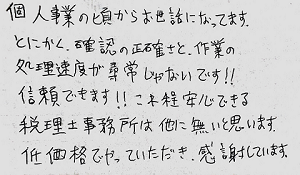 個人事業の頃からお世話になってます。
とにかく、確認の正確さと、作業の
処理速度が尋常じゃないです!!
信頼できます!! これ程安心できる
税理士事務所は他に無いと思います。
低価格でやっていただき、感謝しています。